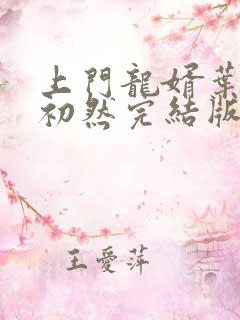 上門龍婿葉
初然完結版
王愛萍